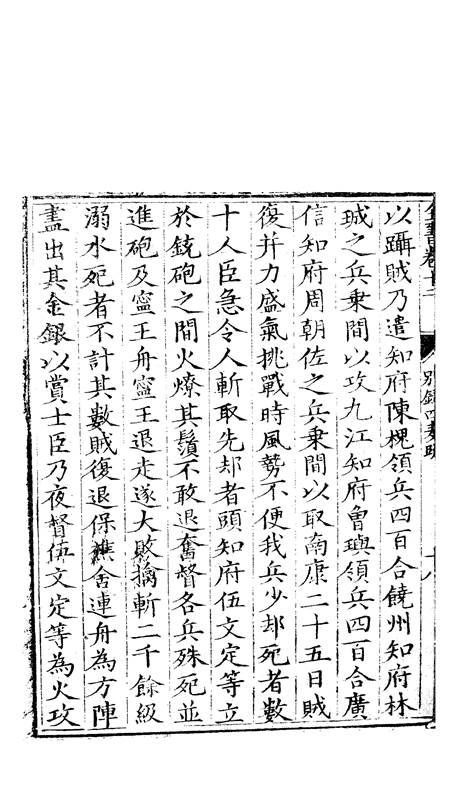 全書卷十二 別錄四奏疏 十八
以躡賊乃遣知府陳槐領兵四百合饒州知府林
珹之兵乗間以攻九江知府曾璵領兵四百合廣
信知府周朝佐之兵乗間以取南康二十五日賊
復并力盛氣挑戰時風勢不便我兵少却死者數
十人臣急令人斬取先却者頭知府伍文定等立
於銃砲之間火燎其鬚不敢退奮督各兵殊死並
進砲及寧王舟寧王退走遂大敗擒斬二千餘級
溺水死者不計其數賊復退保樵舍連舟為方陣
盡出其金銀以賞士臣乃夜督伍文定等為火攻